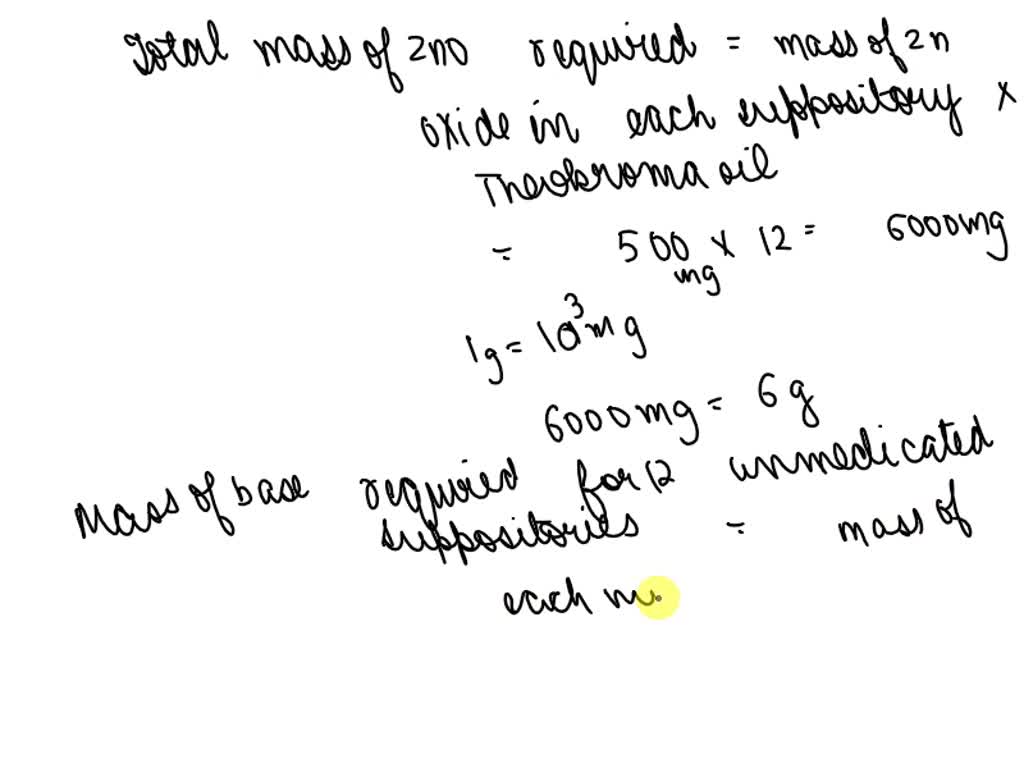 Total mass of zno required = mass of zn
oxide in each suppository x
Theobroma oil
= 500 mg x 12 = 6000mg
1g = 10³mg
6000mg = 6g
Mass of base required for 12 unmedicated
suppositories = mass of
each mu